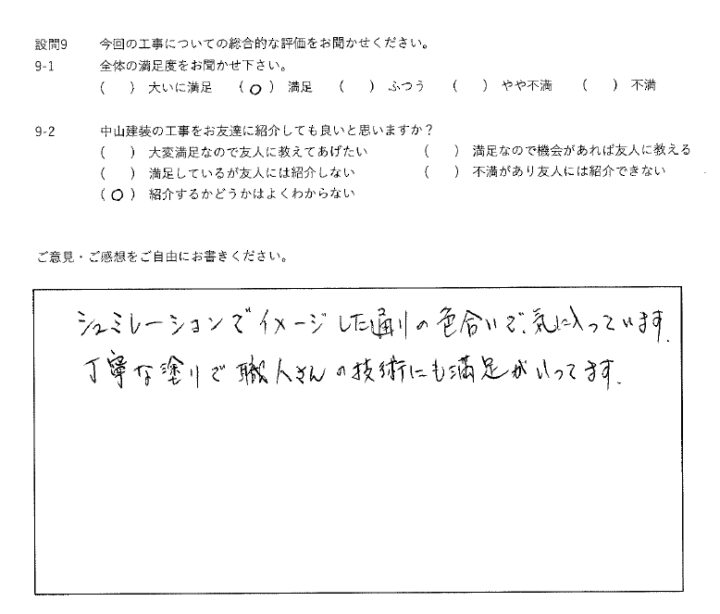 設問9 今回の工事についての総合的な評価をお聞かせください。
9-1 全体の満足度をお聞かせ下さい。
( ) 大いに満足 (○) 満足 ( ) ふつう ( ) やや不満 ( ) 不満
9-2 中山建装の工事をお友達に紹介しても良いと思いますか?
( ) 大変満足なので友人に教えてあげたい ( ) 満足なので機会があれば友人に教える
( ) 満足しているが友人には紹介しない ( ) 不満があり友人には紹介できない
(○) 紹介するかどうかはよくわからない
ご意見・ご感想をご自由にお書きください。
シュミレーションでイメージした通りの色合いで、気に入っています。
丁寧な塗りで職人さんの技術にも満足がいってます。